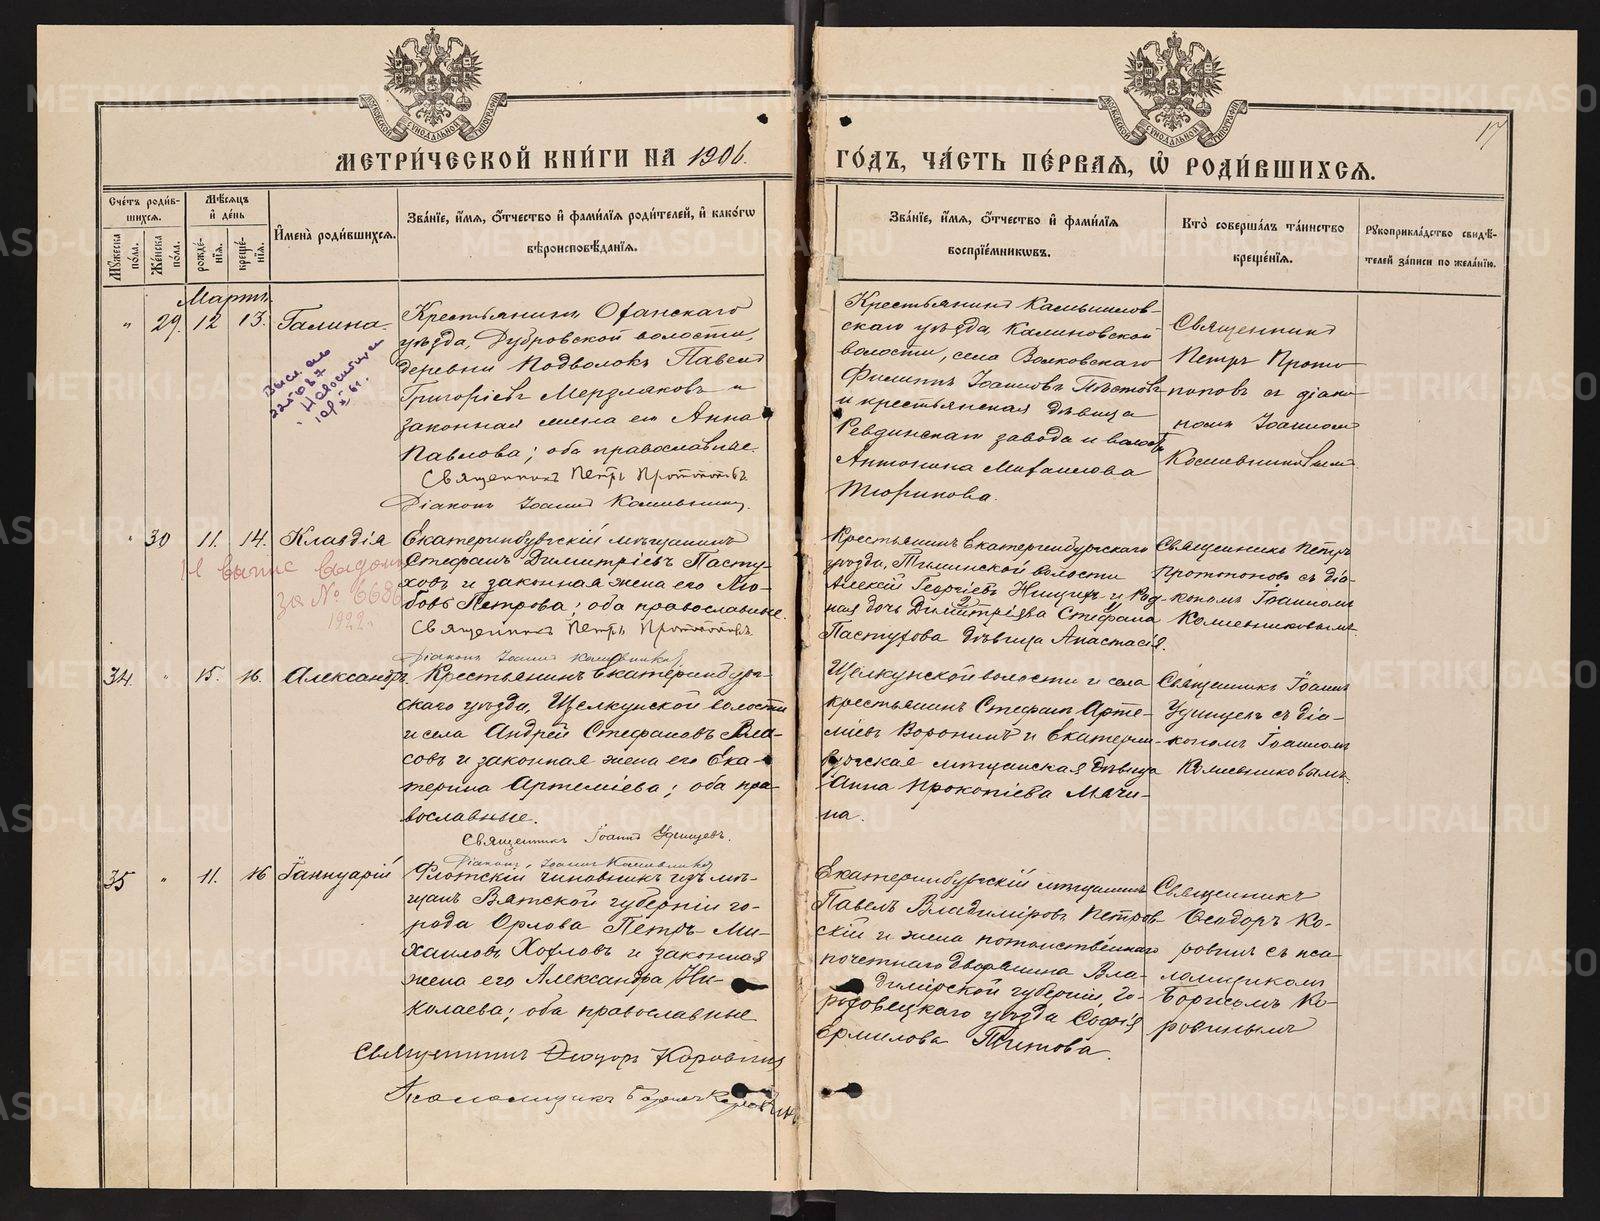 МЕТРИ́ЧЕСКОЙ КНИ́ГИ НА 1906.
ГО́ДЪ, ЧА́СТЬ ПЕ́РВАЯ, Ѡ҆ РОДИ́ВШИХСЯ.
17
Сче́тъ роди́в-
шихся.
Мѣ́сяцъ
и҆ де́нь
Мꙋ́жеска
по́ла.
Же́нска
по́ла.
рожде́-
нїя.
креще́-
нїя.
И҆мена̀ роди́вшихся.
Зва́нїе, и҆́мя, ѻ҆́тчество и҆ фами́лїя роди́телей, и҆ како́гѡ
вѣроисповѣ́данїя.
Зва́нїе, и҆́мя, ѻ҆́тчество и҆ фами́лїя
воспрїе́мникѡвъ.
Кто̀ соверша́лъ та́инство
креще́нїя.
Рꙋкоприкла́дство свидѣ́-
телей за́писи по жела́нїю.
Мартъ
" 29. 12 13. Галина.
Крестьянинъ Оханскаго
уѣзда, Дубровской волости,
деревни Подволокъ Павелъ
Григоріевъ Мерзляковъ и
законная жена его Анна
Павлова; оба православные.
Священникъ Петръ Протопоповъ.
Діаконъ Іоаннъ
Крестьянинъ Камышлов-
скаго уѣзда, Калиновской
волости, села Волковскаго
Филиппъ Іоанновъ
и крестьянская дѣвица
Ревдинскаго завода и волости
Антонина Михаилова
Тюрикова.
Священникъ
Петръ Прото-
поповъ съ діако-
номъ Іоанномъ
" 30 11. 14. Клавдія
Н выпис выдана
за № 6686
1922 г.
Екатеринбургскій мѣщанинъ
Стефанъ Димитріевъ Пасту-
ховъ и законная жена его Лю-
бовь Петрова; оба православные.
Священникъ Петръ Протопоповъ.
Діаконъ Іоаннъ
Крестьянинъ Екатеринбургскаго
уѣзда, волости
Алексій Георгіевъ и род-
ная дочь Димитріева Стефана
Пастухова дѣвица Анастасія.
Священникъ Петръ
Протопоповъ съ діа-
кономъ Іоанномъ
34. " 15. 16. Александръ.
Крестьянинъ Екатеринбург-
скаго уѣзда, Щелкунской волости
и села Андрей Стефановъ Вла-
совъ и законная жена его Ека-
терина Артеміева; оба пра-
вославные.
Священникъ Іоаннъ Удинцевъ.
Діаконъ Іоаннъ
Щелкунской волости и села
крестьянинъ Стефанъ Арте-
міевъ Воронинъ и Екатерин-
бургская мѣщанская дѣвица
Анна Прокопіева Мячи-
на.
Священникъ Іоаннъ
Удинцевъ съ діа-
кономъ Іоанномъ
35 " 11. 16 Іаннуарій
Флотскій чиновникъ изъ мѣ-
щанъ Вятской губерніи го-
рода Орлова Петръ Ми-
хаиловъ Хохловъ и законная
жена его Александра Ни-
колаева; оба православные
Священникъ Ѳеодоръ Коровинъ
Псаломщикъ Борисъ Коровинъ
Екатеринбургскій мѣщанинъ
Павелъ Владиміровъ Петров-
скій и жена потомственнаго
почетнаго дворянина Вла-
димірской губерніи, Го-
роховецкаго уѣзда Софія
Ермилова Титова.
Священникъ
Ѳеодоръ Ко-
ровинъ съ пса-
ломщикомъ
Борисомъ Ко-
ровинымъ
METRIKI.GASO-URAL.RU